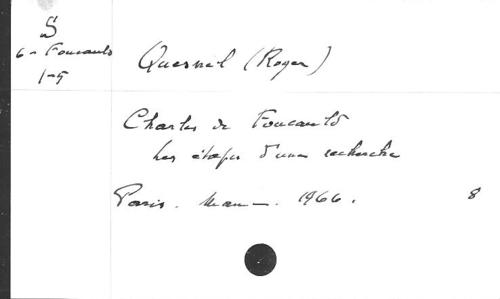 S
6 - Foucauld
1-5
Quesnel (Roger)
Charles de Foucauld
Les étapes d'une recherche
Paris. Mame. 1966.
8